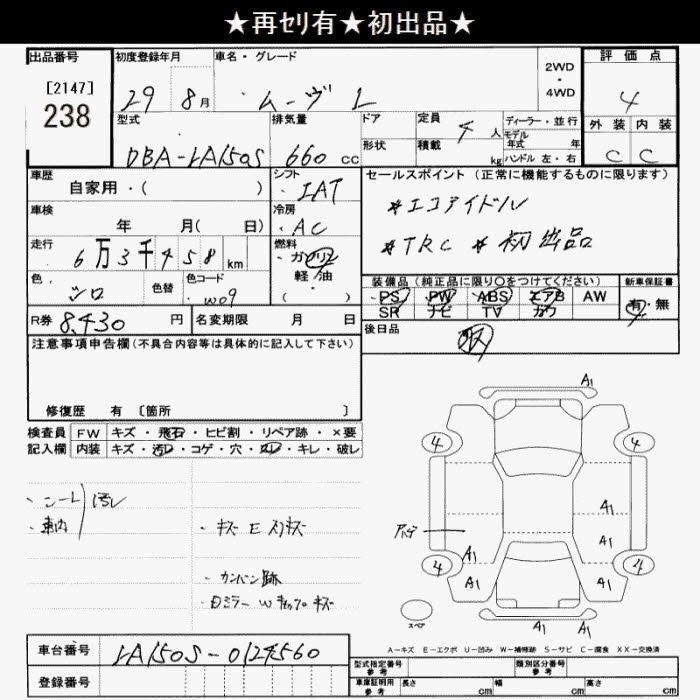 ★再セリ有★初出品★
出品番号 初度登録年月 車名・グレード 2WD・4WD 評価点
[2147]
238
29 8月 ムーヴ L 4
型式 排気量 ドア 定員 4 人 ディーラー・並行
形状 積載 kg モデル年式 年 ハンドル 左・右
外装 内装
C C
DBA-LA150S 660 cc
車歴 シフト セールスポイント (正常に機能するものに限ります)
自家用・( ) IAT
*エコアイドル
車検 冷房
年 月( 日) AC
*TRC *初出品
走行 燃料
6万3千458 km ガソリン 軽油 ・( )
色 色替 色コード
シロ W09
装備品 (純正品に限り○をつけてください) 新車保証書
PS PW ABS エアB AW 有・無
SR ナビ TV カワ
R券 8,430 円 名変期限 月 日
後日品
取
注意事項申告欄(不具合内容等は具体的に記入して下さい)
修復歴 有 [箇所 ]
検査員 FW キズ・飛石・ヒビ割・リペア跡・×要
記入欄 内装 キズ・汚レ・コゲ・穴・スレ・キレ・破レ
・シート 汚レ
・車内
・キズ E スリキズ
・カンバン跡
・ミラー W チップ キズ
A1
4 4
A1
A1 A1
4 4
A1 A1
A1 A1
スペア
A-キズ E-エクボ U-凹み W-補修跡 S-サビ C-腐食 XX-交換済
車台番号 LA150S-0124560
登録番号
型式指定番号 参考 類別区分番号 参考
車庫証明用 参考 長さ cm 幅 cm 高さ cm